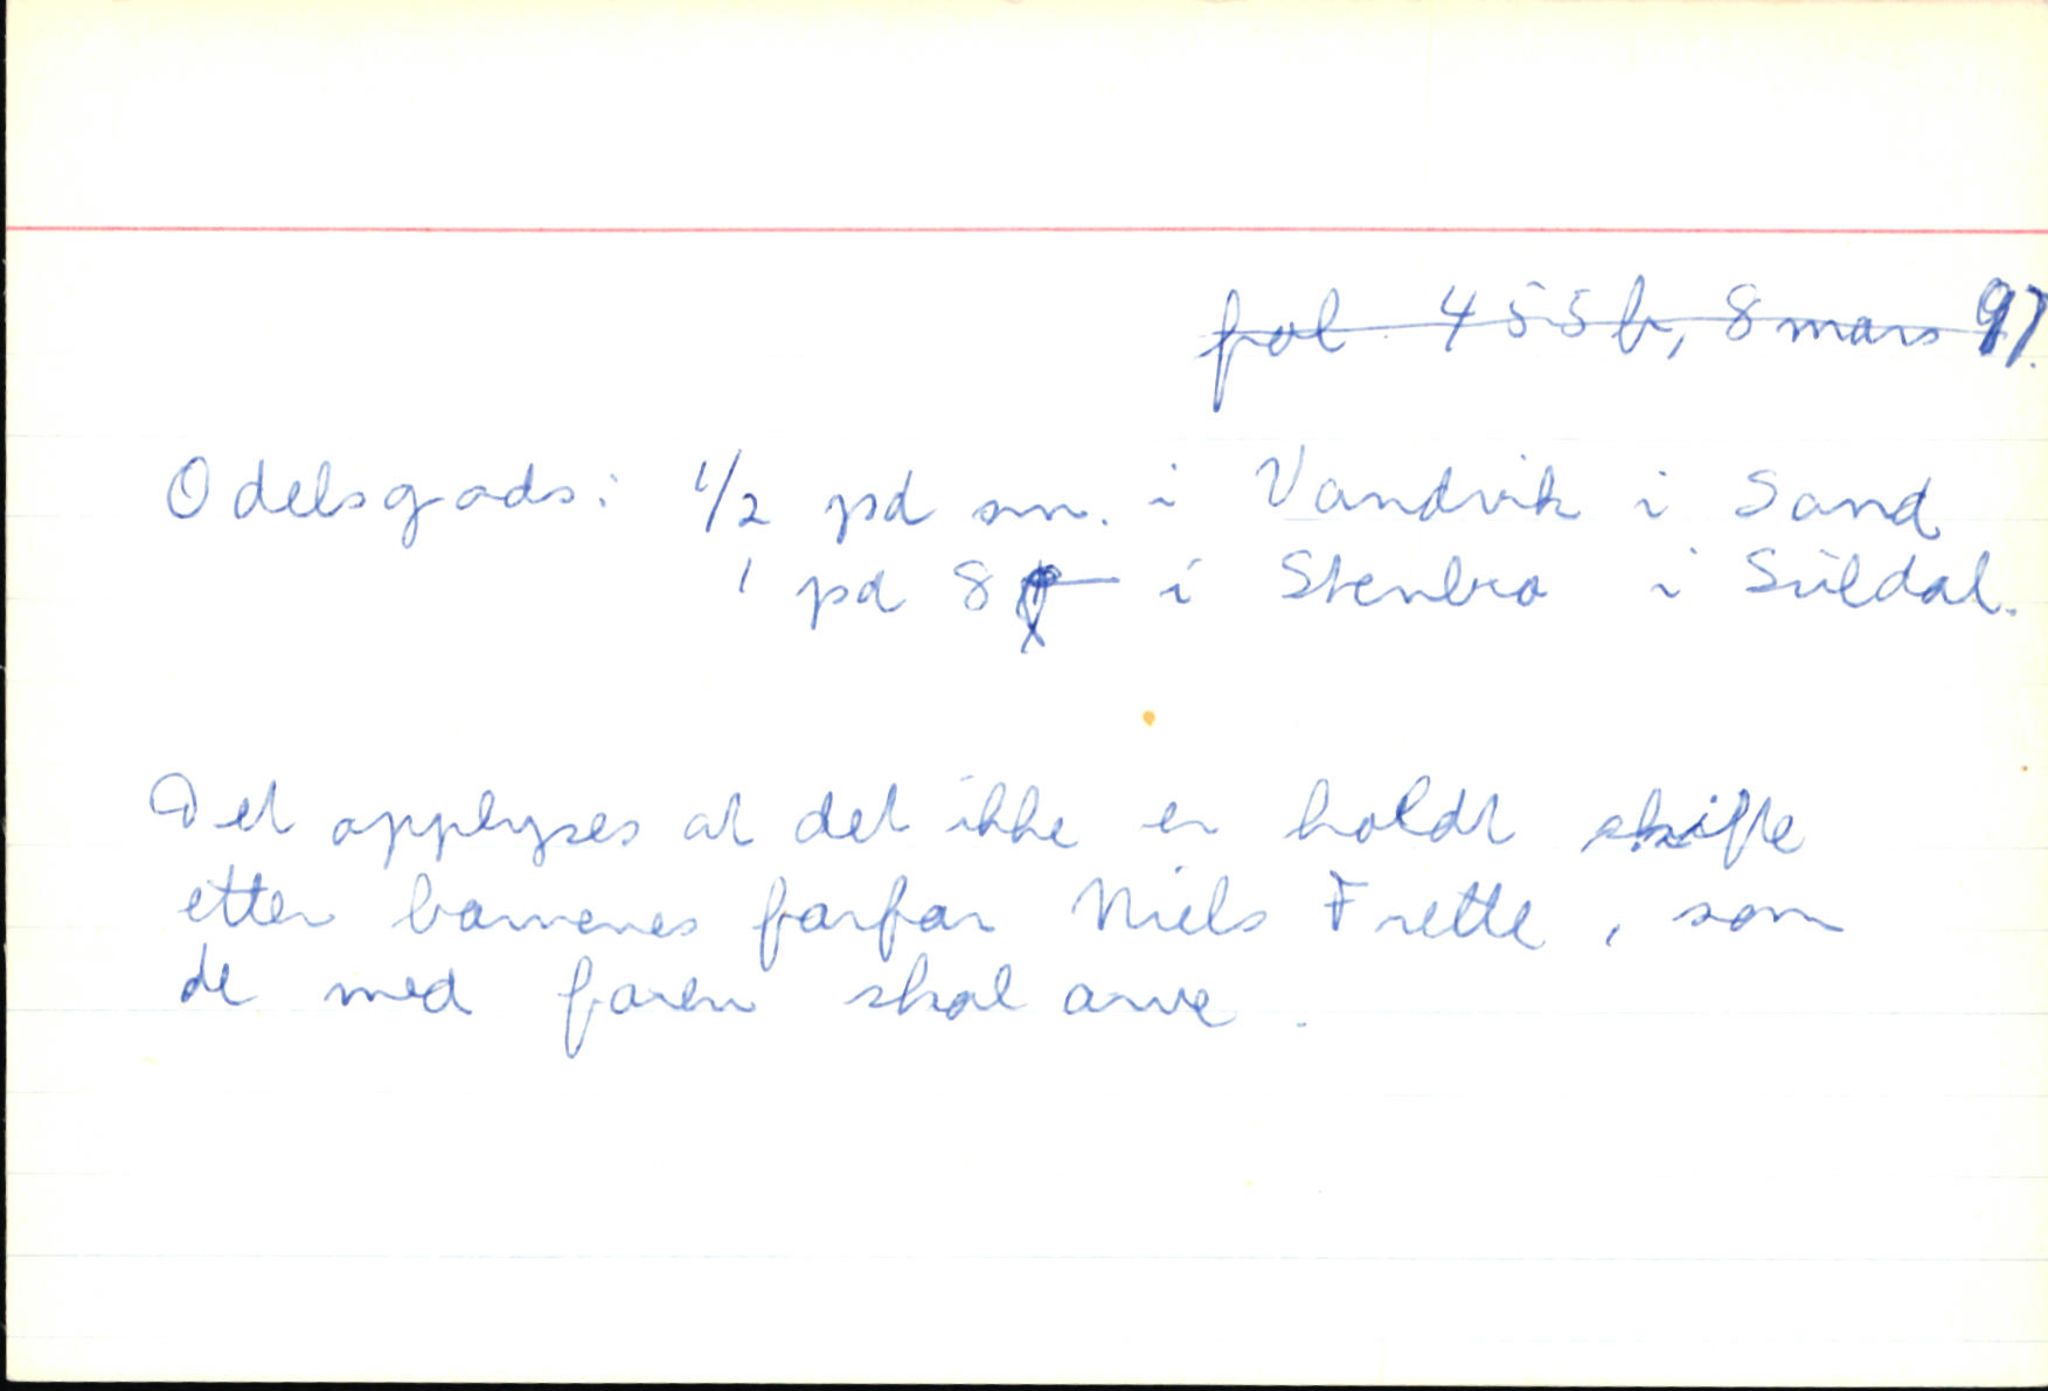 fol. 455b, 8 mars 97.
Odelsgods: 1/2 pd sm. i Vandvik i Sand
1 pd 8 i Stenbro i Suldal.
Det opplyses at det ikke er holdt skifte
etter barnenes farfar Niels Frette, som
de med faren skal arve.